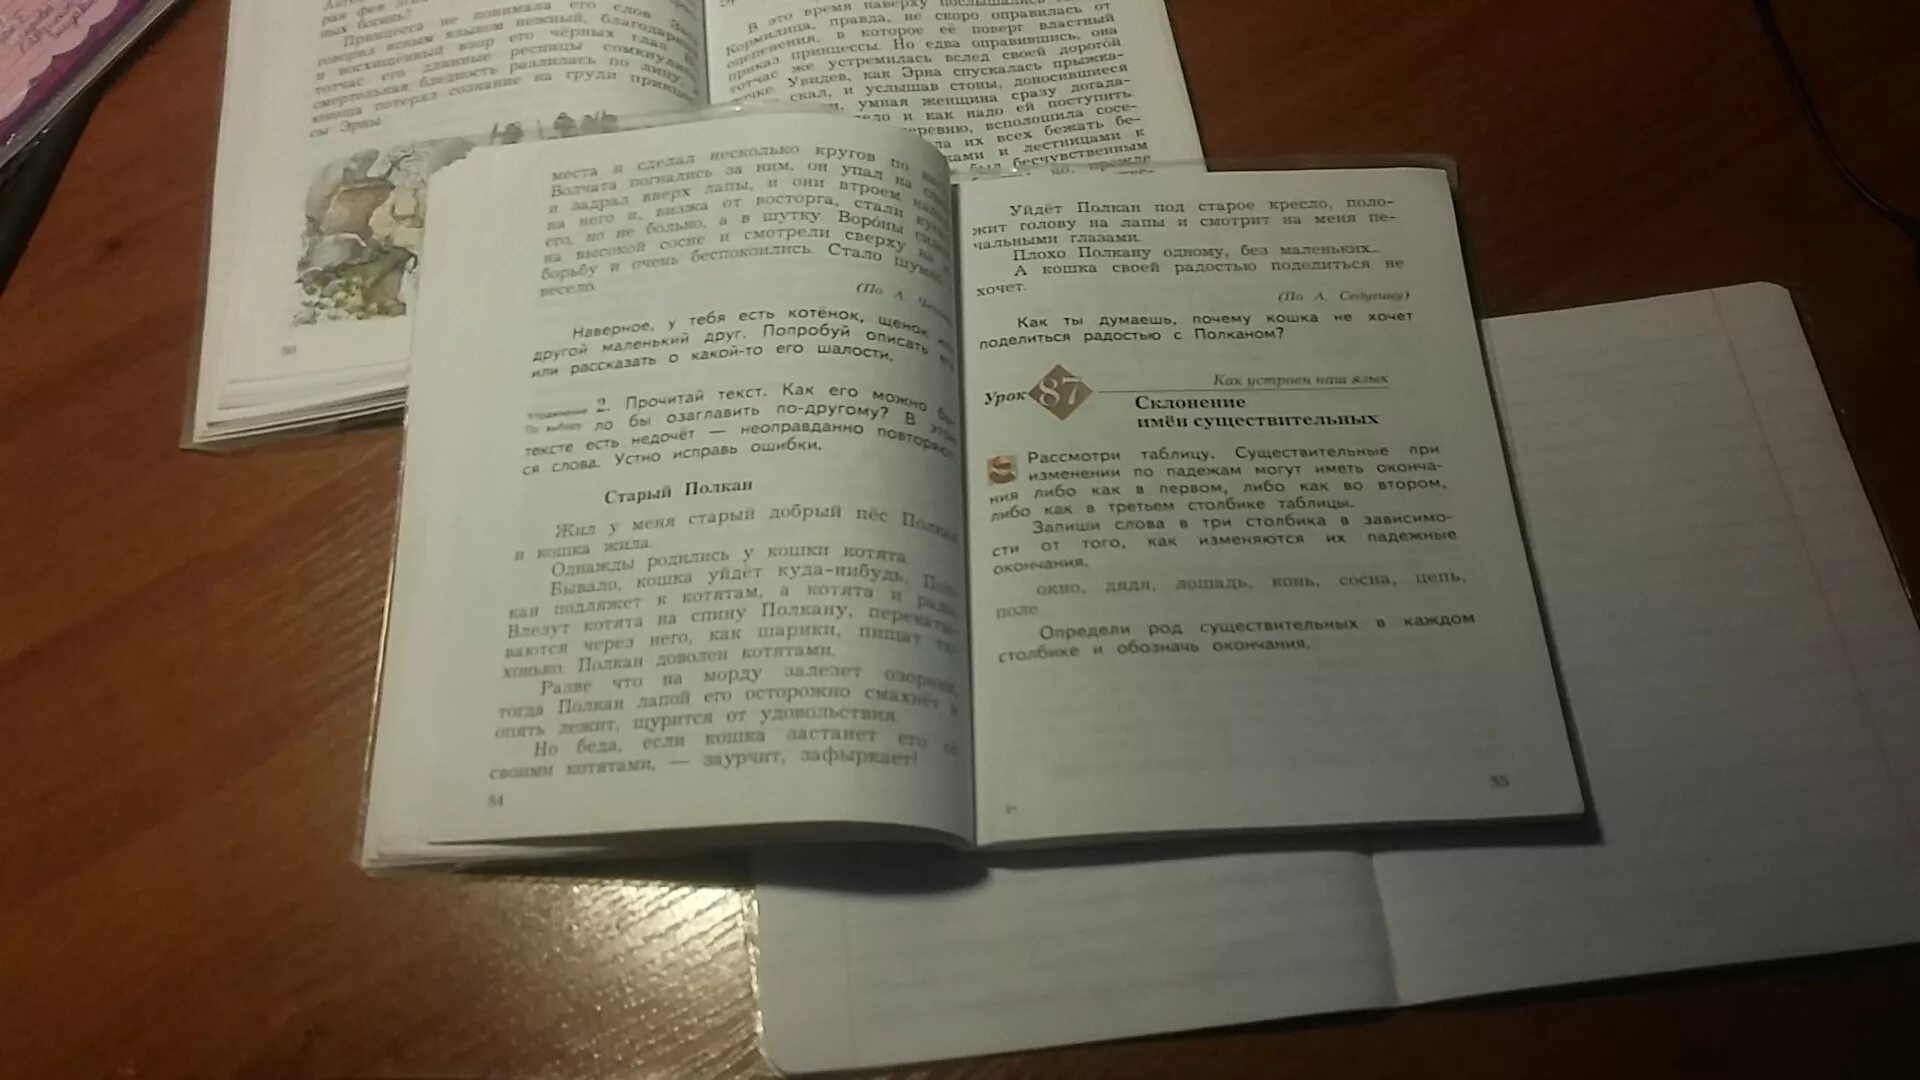 Принцесса не понимала его слов
говорил ясным языком нежный,
и восхищенный взор его чёрных глаз
тотчас его длинные ресницы сомкнулись
смертельная бледность разлилась по лицу, и
юноша потерял сознание на груди
сы Эрны.
В это время наверху послышались
Кормилица, правда, не скоро оправилась от
оцепенения, в которое её поверг властный
приказ принцессы. Но едва оправившись, она
тотчас же устремилась вслед своей дорогой
Увидев, как Эрна спускалась
скал, и услышав стоны, доносившиеся
умная женщина сразу
и как надо ей поступить.
всполошила
их всех бежать
и лестницами к
был бесчувственным
места и сделал несколько кругов по
Волчата погнались за ним, он упал на
и задрал вверх лапы, и они втроем
на него и, визжа от восторга, стали
его, но не больно, а в шутку Вороны
на высокой сосне и смотрели сверху на
борьбу и очень беспокоились. Стало
весело.
(По А.
Наверное, у тебя есть котёнок, щенок
другой маленький друг. Попробуй описать
или рассказать о какой-то его шалости.
Упражнение 2. Прочитай текст. Как его можно
По выбору ло бы озаглавить по-другому? В
тексте есть недочёт — неоправданно
ся слова. Устно исправь ошибки.
Старый Полкан
Жил у меня старый добрый пёс Полкан
и кошка жила.
Однажды родились у кошки котята.
Бывало, кошка уйдёт куда-нибудь,
кан подляжет к котятам, а котята и рады
Влезут котята на спину Полкану,
ваются через него, как шарики, пищат
хонько. Полкан доволен котятами.
Разве что на морду залезет
тогда Полкан лапой его осторожно смахнёт и
опять лежит, щурится от удовольствия.
Но беда, если кошка застанет его со
своими котятами, — заурчит, зафыркает!
54
Уйдёт Полкан под старое кресло, поло-
жит голову на лапы и смотрит на меня пе-
чальными глазами.
Плохо Полкану одному, без маленьких...
А кошка своей радостью поделиться не
хочет.
(По А. Седугину)
Как ты думаешь, почему кошка не хочет
поделиться радостью с Полканом?
Урок 87
Как устроен наш язык
Склонение
имён существительных
Рассмотри таблицу. Существительные при
изменении по падежам могут иметь оконча-
ния либо как в первом, либо как во втором,
либо как в третьем столбике таблицы.
Запиши слова в три столбика в зависимо-
сти от того, как изменяются их падежные
окончания.
окно, дядя, лошадь, конь, сосна, цепь,
поле
Определи род существительных в каждом
столбике и обозначь окончания.
55